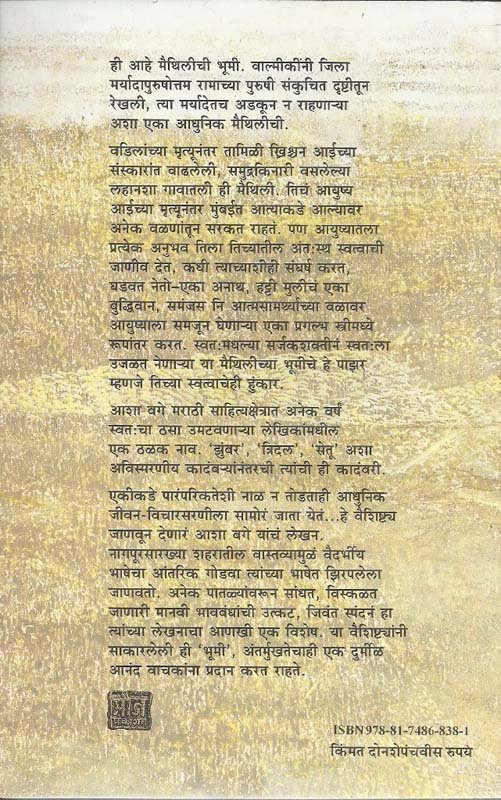 ही आहे मैथिलीची भूमी. वाल्मीकींनी जिला
मर्यादापुरुषोत्तम रामाच्या पुरुषी संकुचित दृष्टीतून
रेखली, त्या मर्यादेतच अडकून न राहणाऱ्या
अशा एका आधुनिक मैथिलीची.
वडिलांच्या मृत्यूनंतर तामिळी ख्रिश्चन आईच्या
संस्कारांत वाढलेली, समुद्रकिनारी वसलेल्या
लहानशा गावातली ही मैथिली. तिचं आयुष्य
आईच्या मृत्यूनंतर मुंबईत आत्याकडे आल्यावर
अनेक वळणांतून सरकत राहतं. पण आयुष्यातला
प्रत्येक अनुभव तिला तिच्यातील अंत:स्थ स्वत्वाची
जाणीव देत, कधी त्याच्याशीही संघर्ष करत,
घडवत नेतो–एका अनाथ, हट्टी मुलीचं एका
बुद्धिवान, समंजस नि आत्मसामर्थ्याच्या बळावर
आयुष्याला समजून घेणाऱ्या एका प्रगल्भ स्त्रीमध्ये
रूपांतर करत. स्वत:मधल्या सर्जकशक्तीनं स्वत:ला
उजळत नेणाऱ्या या मैथिलीच्या भूमीचे हे पाझर
म्हणजे तिच्या स्वत्वाचेही हुंकार.
आशा बगे मराठी साहित्यक्षेत्रात अनेक वर्षं
स्वत:चा ठसा उमटवणाऱ्या लेखिकांमधील
एक ठळक नाव. 'झुंबर', 'त्रिदल', 'सेतू' अशा
अविस्मरणीय कादंबऱ्यांनंतरची त्यांची ही कादंबरी.
एकीकडे पारंपरिकतेशी नाळ न तोडताही आधुनिक
जीवन-विचारसरणीला सामोरं जाता येतं...हे वैशिष्ट्य
जाणवून देणारं आशा बगे यांचं लेखन.
नागपूरसारख्या शहरातील वास्तव्यामुळं वैदर्भीय
भाषेचा आंतरिक गोडवा त्यांच्या भाषेत झिरपलेला
जाणवतो. अनेक पातळ्यांवरून सांधत, विस्कळत
जाणारी मानवी भावबंधांची उत्कट, जिवंत स्पंदनं हा
त्यांच्या लेखनाचा आणखी एक विशेष. या वैशिष्ट्यांनी
साकारलेली ही 'भूमी', अंतर्मुखतेचाही एक दुर्मीळ
आनंद वाचकांना प्रदान करत राहते.
मौज
प्रकाशन
ISBN 978-81-7486-838-1
किंमत दोनशेपंचवीस रुपये